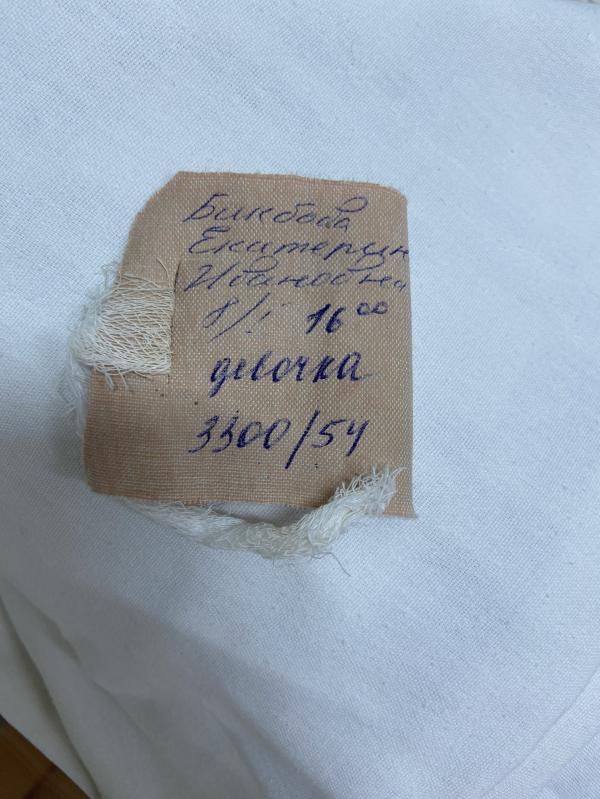 Бикбова
Екатерин
Ивановна
8/I 16 00
девочка
3300/54